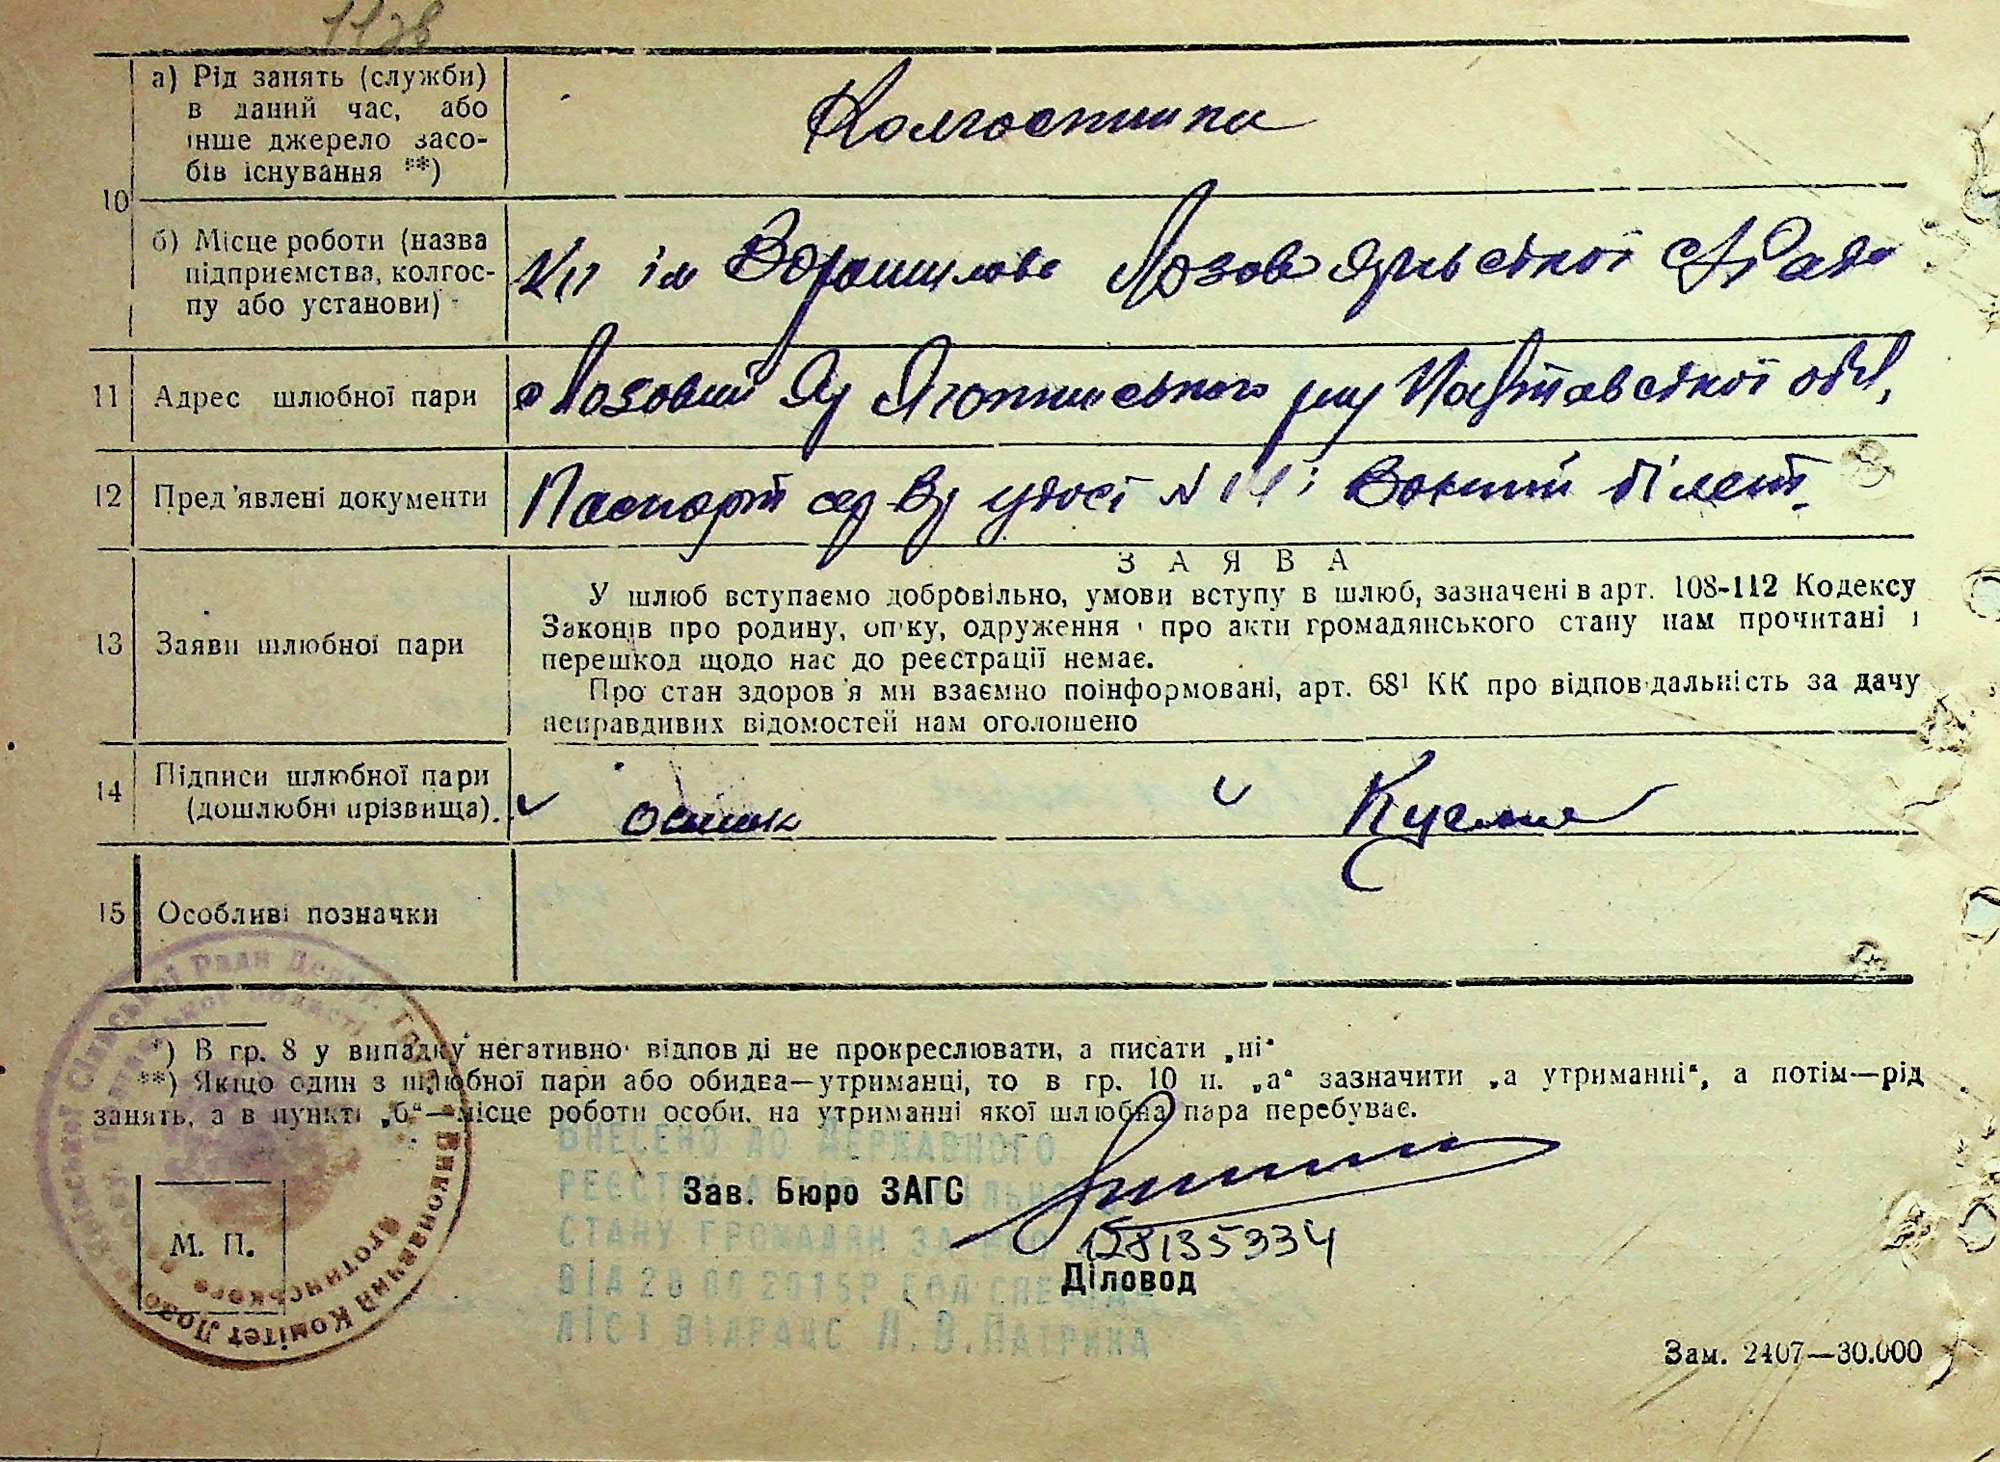 1128
а) Рід занять (служби)
в даний час, або
інше джерело засо-
бів існування **)
Колгоспники
10
б) Місце роботи (назва
підприємства, колгос-
пу або установи)
ім Ворошилова Лозово Ярської с/Ради
11 Адрес шлюбної пари
с Лозовий Яр Яготинського р-ну Полтавської обл,
12 Пред'явлені документи
Паспорт Військ білет.
13 Заяви шлюбної пари
ЗАЯВА
У шлюб вступаємо добровільно, умови вступу в шлюб, зазначені в арт. 108-112 Кодексу
Законів про родину, опіку, одруження і про акти громадянського стану нам прочитані і
перешкод щодо нас до реєстрації немає.
Про стан здоров'я ми взаємно поінформовані, арт. 68¹ КК про відповідальність за дачу
неправдивих відомостей нам оголошено
14 Підписи шлюбної пари
(дошлюбні прізвища).
15 Особливі позначки
*) В гр. 8 у випадку негативної відповіді не прокреслювати, а писати „ні"
**) Якщо один з шлюбної пари або обидва—утриманці, то в гр. 10 п. „а" зазначити „а утриманні", а потім—рід
занять, а в пункті „б"—місце роботи особи, на утриманні якої шлюбна пара перебуває.
ВНЕСЕНО ДО ДЕРЖАВНОГО
РЕЄСТРУ
СТАНУ ГРОМАДЯН ЗА
ВІД 2015Р
ЛІСТ ВІДРАЦС
Зав. Бюро ЗАГС
158135334
Діловод
М. П.
Виконавчий Комітет
Яготинського
Зам. 2407—30.000